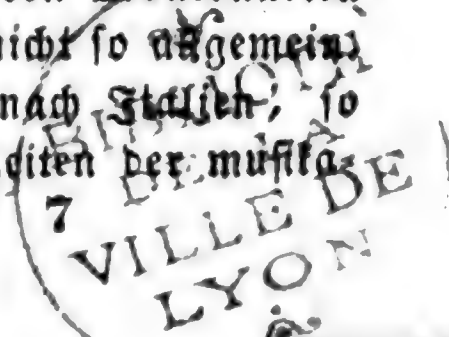 nicht so allgemein,
nach Italien, so
der musika-
7
VILLE DE
LYON